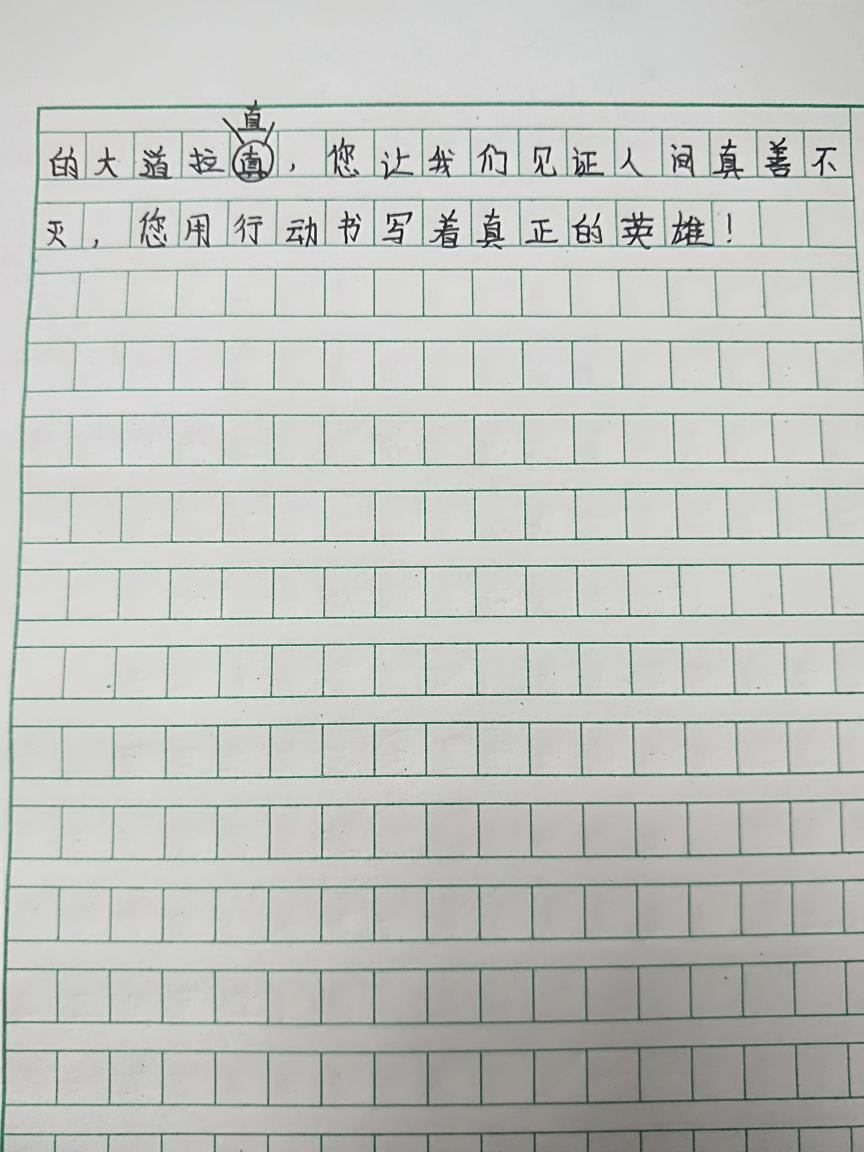 直
的大道拉直，您让我们见证人间真善不
灭，您用行动书写着真正的英雄！